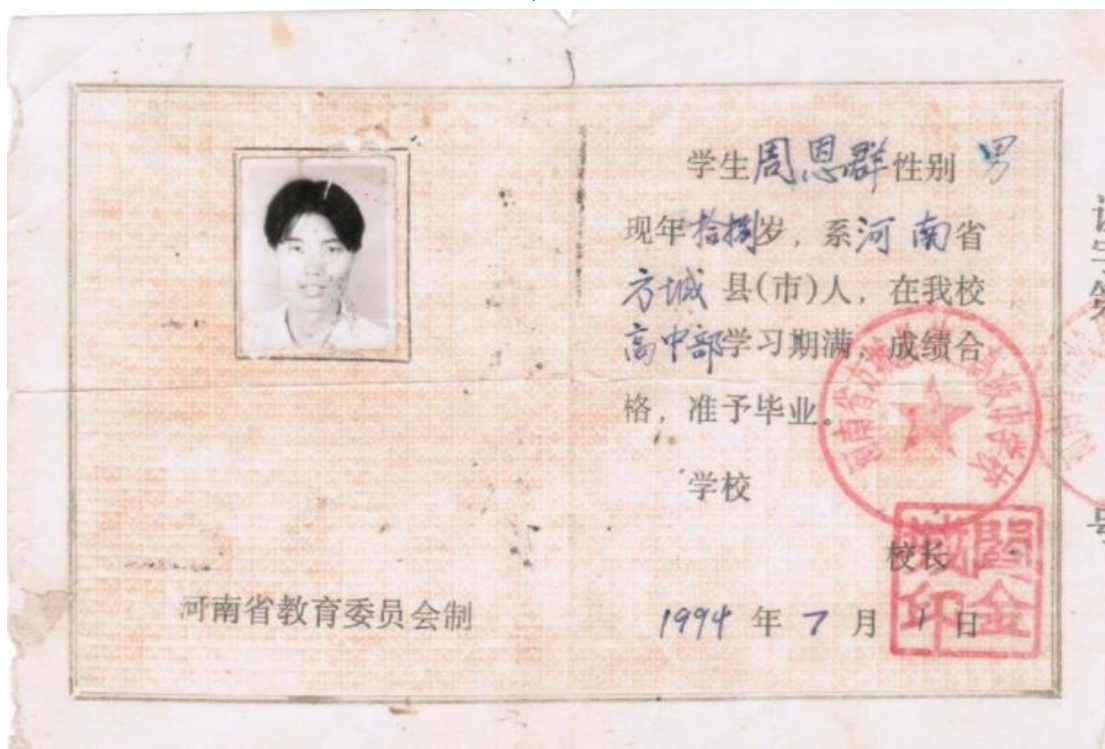 学生周恩群性别 男
现年拾捌岁，系河南省
方城县(市)人，在我校
高中部学习期满，成绩合
格，准予毕业。
学校
校长
1994年7月1日
河南省教育委员会制
阎金城印
号